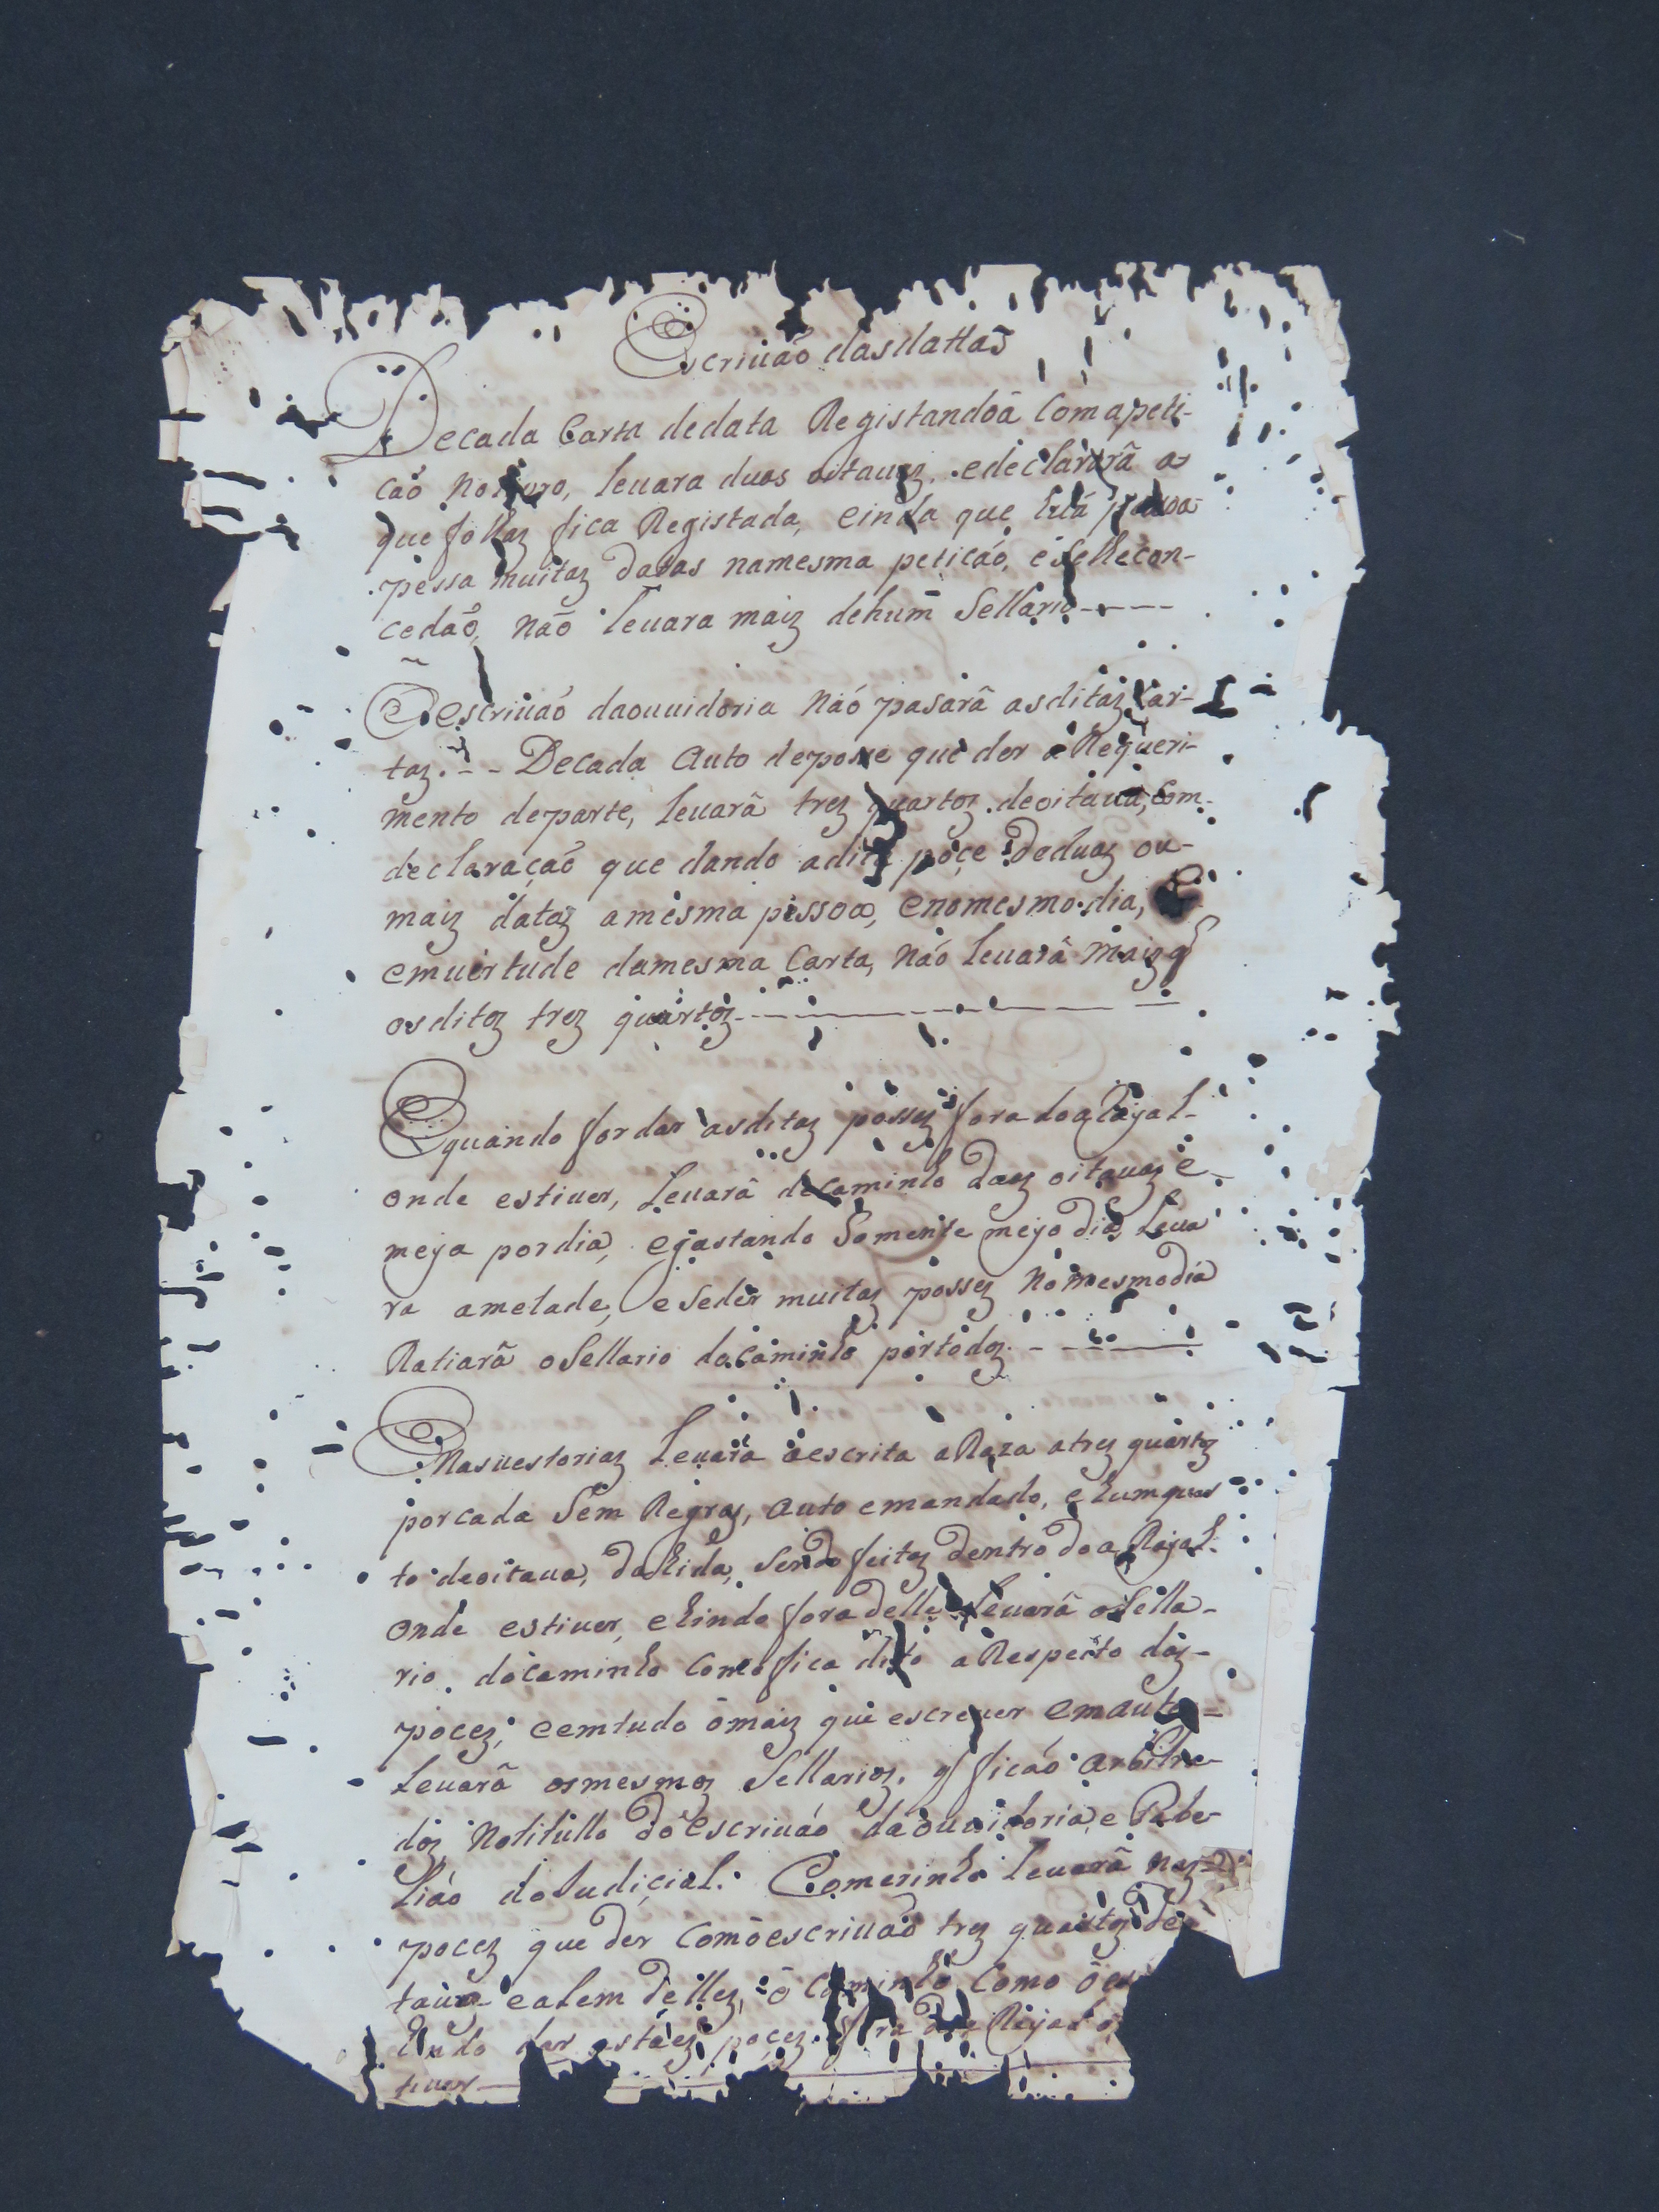 Escriuaõ dasdattas
Decada Carta dedata Registandoâ Comapeti-
caõ no liuro, leuara duas oitauaz, edeclararâ as
que folhaz fica Registada, einda que huâ pesoa
pessa muitaz datas namesma peticaõ, eselhecon-
cedaõ, naõ leuara maiz dehum sellario
Oescriuaõ daouuidoria naõ pasarâ asditaz Car-
taz. -- Decada Auto deposse que der a Requeri-
mento departe, leuarâ trez quartoz deoitaua, com
declaraçaõ que dando adita poçe deduaz ou-
maiz dataz amesma pessoa, enomesmo dia, E
emuertude damesma Carta, naõ leuarâ maiz q
osditoz trez quartoz
Equando for dar asditaz possez fora doaRayal-
onde estiuer, leuarâ decaminho duaz oitauaz e
meya pordia, egastando somente meyo dia, leua
ra ametade, e seder muitaz possez no mesmodia
Ratiarâ osellario docaminho portodoz.
Enasuestoriaz leuarâ aescrita aRaza atrez quartoz
porcada sem Regraz, auto emandado, ehumquar
to deoitaua, dahida, sendo feitaz dentro doaRayal.
onde estiuer, ehindo fora delle leuarâ osella-
rio docaminho Como fica dito aRespeito daz-
pocez; eemtudo omaiz que escreuer emauto-
leuarâ osmesmoz sellarioz, q ficaõ arbitra-
doz notitullo doescriuaõ daouuidoria, e Tabe-
liaõ doJudicial. Eomeirinho leuarâ naz-
pocez que der comoescriuaõ trez quartoz de
taua ealem dellez, o caminho Como oes
hindo dar estaez poçez fora doaRayal
tiuer